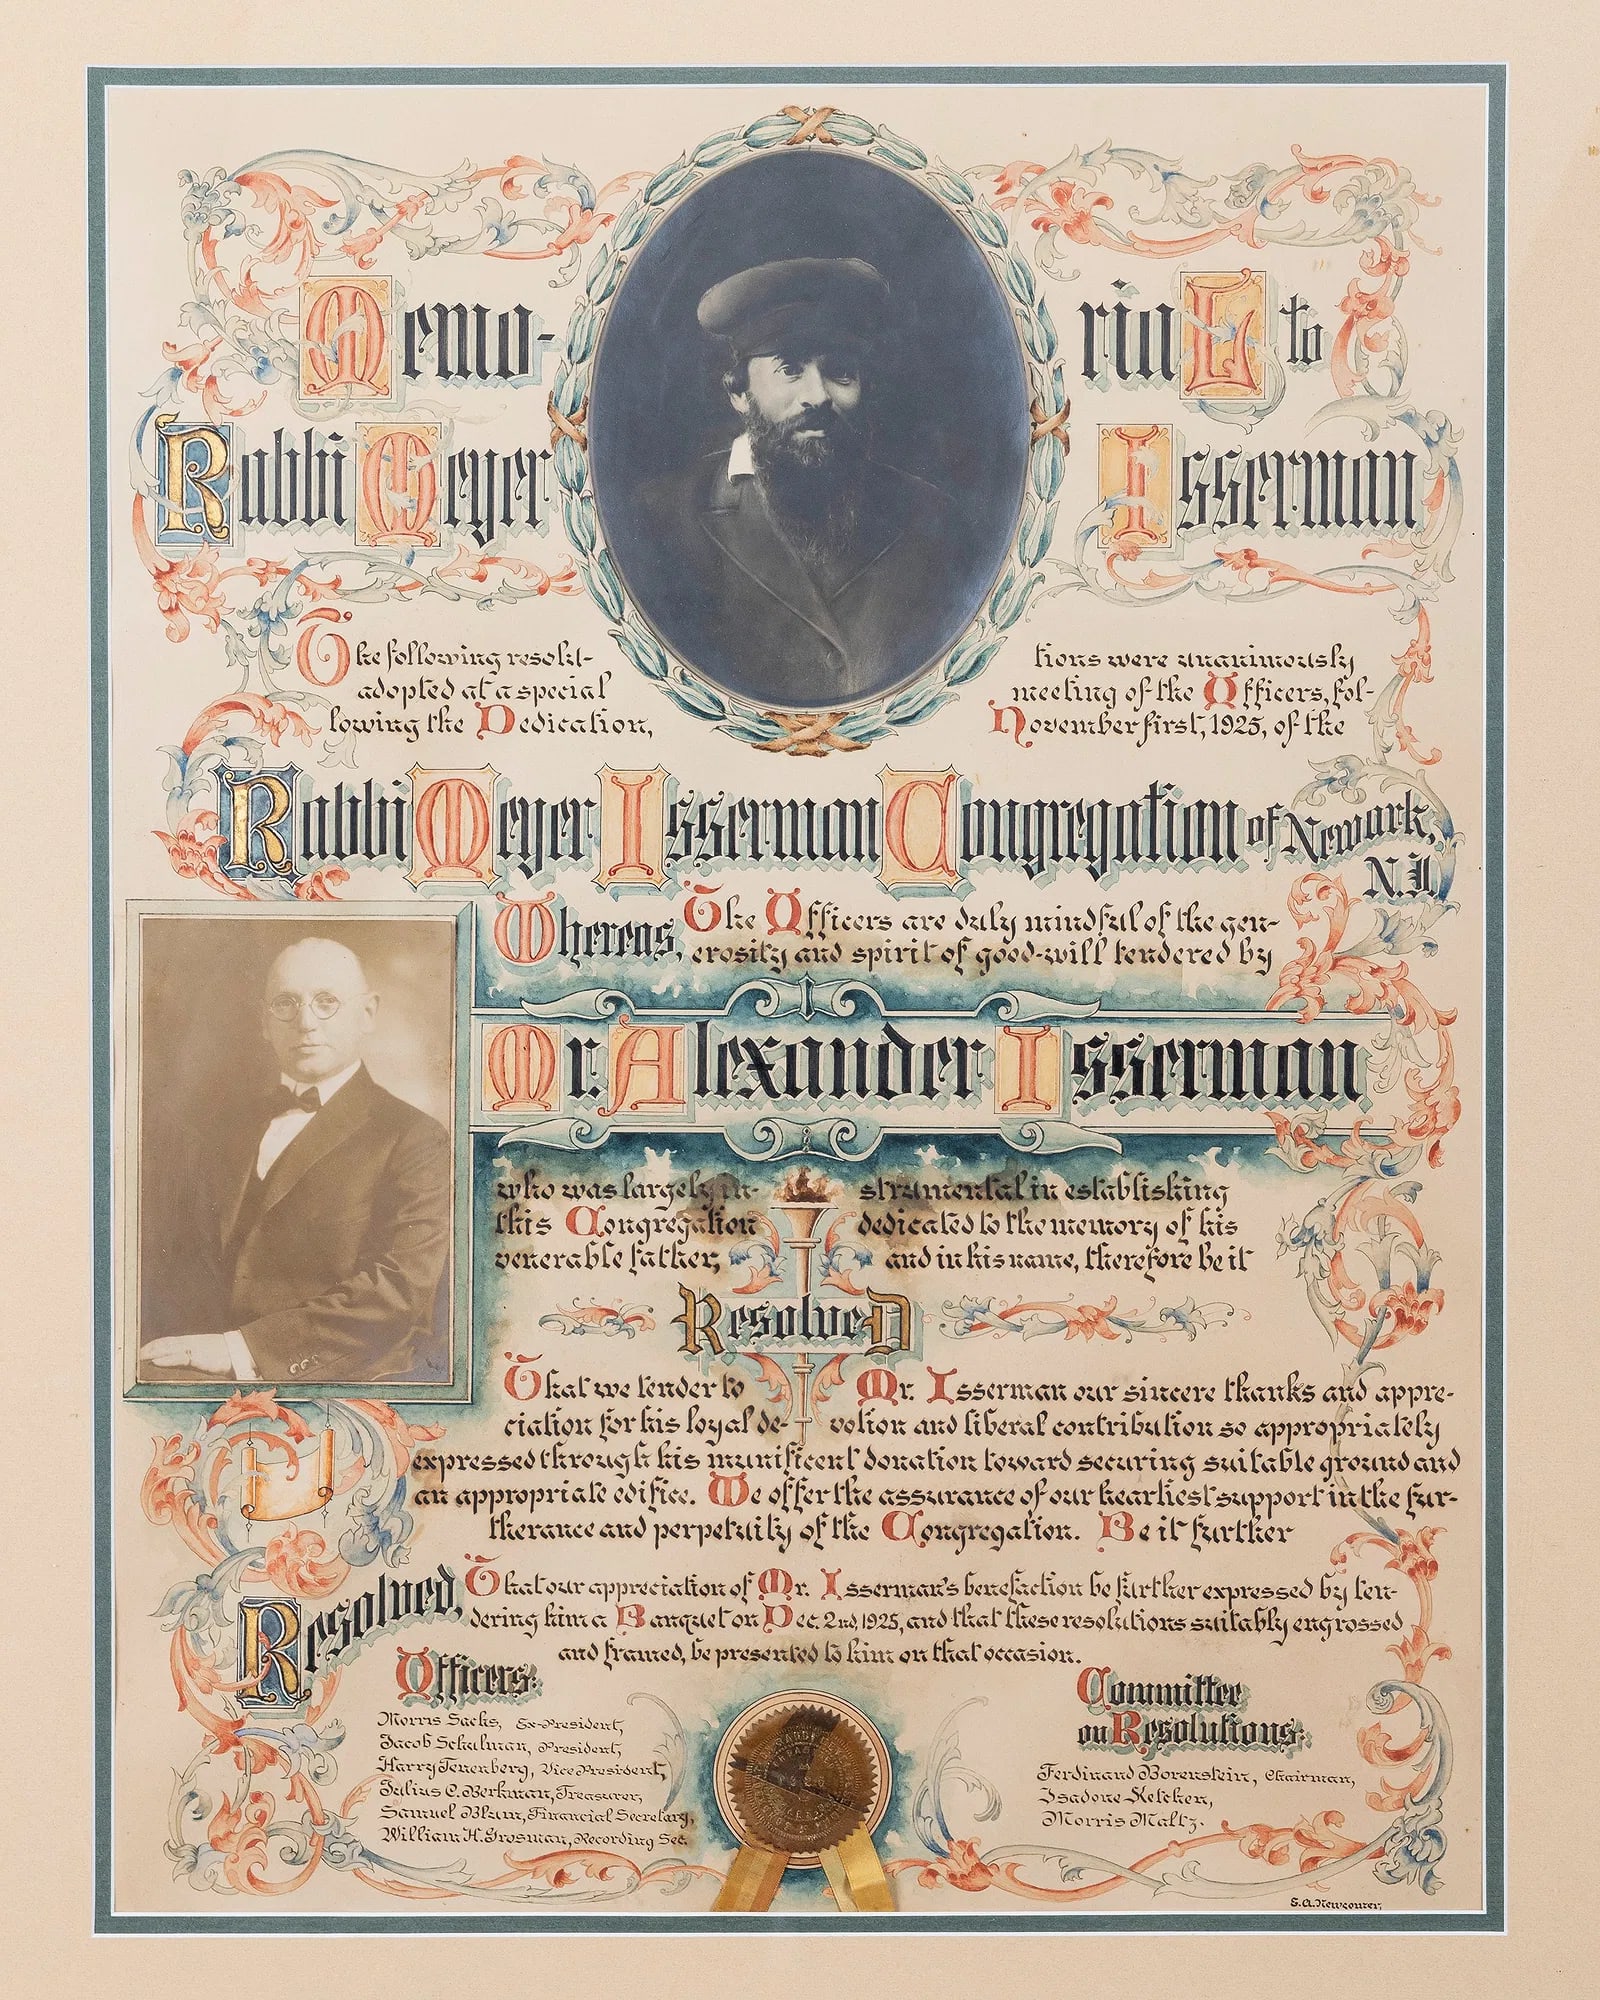 Memo- rial to
Rabbi Meyer Isserman
The following resolu- tions were unanimously
adopted at a special meeting of the Officers, fol-
lowing the Dedication, November first, 1925, of the
Rabbi Meyer Isserman Congregation of Newark,
N.J.
Whereas, The Officers are duly mindful of the gen-
erosity and spirit of good-will tendered by
Mr. Alexander Isserman
who was largely in- strumental in establishing
this Congregation dedicated to the memory of his
venerable father, and in his name, therefore be it
Resolved
That we tender to Mr. Isserman our sincere thanks and appre-
ciation for his loyal de- votion and liberal contribution so appropriately
expressed through his munificent donation toward securing suitable ground and
an appropriate edifice. We offer the assurance of our heartiest support in the fur-
therance and perpetuity of the Congregation. Be it further
Resolved, That our appreciation of Mr. Isserman's benefaction be further expressed by ten-
dering him a Banquet on Dec. 2nd, 1925, and that these resolutions suitably engrossed
and framed, be presented to him on that occasion.
Officers:
Morris Sachs, Ex-President,
Jacob Schulman, President,
Harry Tenenberg, Vice President,
Julius C. Berkman, Treasurer,
Samuel Blum, Financial Secretary,
William H. Grosman, Recording Sec.
Committee
on Resolutions:
Ferdinand Borenstein, Chairman,
Isadore Kelchen,
Morris Maltz.
S.A. Newcomer.